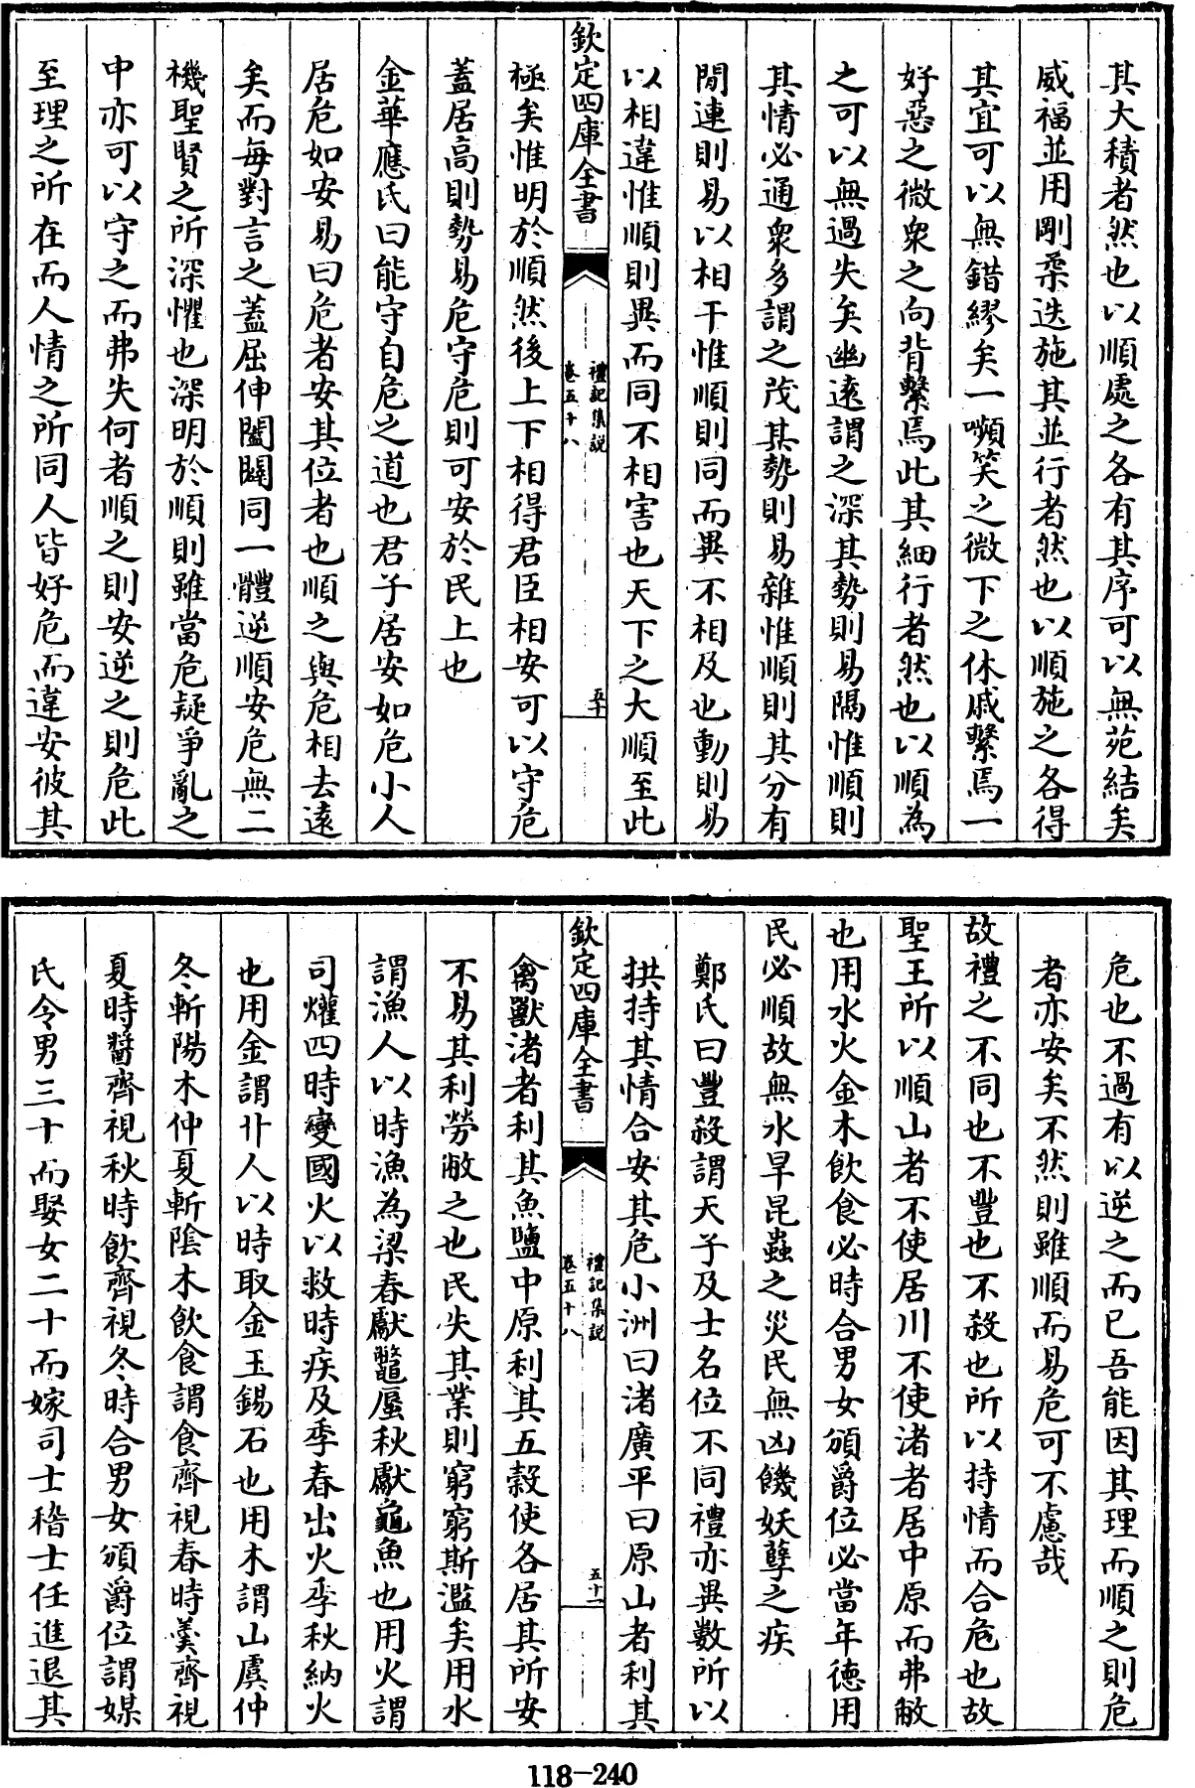 其大積者然也以順處之各有其序可以無苑結矣
威福並用剛柔迭施其並行者然也以順施之各得
其宜可以無錯繆矣一嚬笑之微下之休戚繫焉一
好惡之微衆之向背繫焉此其細行者然也以順為
之可以無過失矣幽遠謂之深其勢則易隔惟順則
其情必通衆多謂之茂其勢則易雜惟順則其分有
閒連則易以相干惟順則同而異不相及也動則易
以相違惟順則異而同不相害也天下之大順至此
欽定四庫全書
禮記集說
卷五十八
五十
極矣惟明於順然後上下相得君臣相安可以守危
蓋居高則勢易危守危則可安於民上也
金華應氏曰能守自危之道也君子居安如危小人
居危如安易曰危者安其位者也順之與危相去遠
矣而每對言之蓋屈伸闔闢同一體逆順安危無二
機聖賢之所深懼也深明於順則雖當危疑爭亂之
中亦可以守之而弗失何者順之則安逆之則危此
至理之所在而人情之所同人皆好危而違安彼其
危也不過有以逆之而已吾能因其理而順之則危
者亦安矣不然則雖順而易危可不慮哉
故禮之不同也不豐也不殺也所以持情而合危也故
聖王所以順山者不使居川不使渚者居中原而弗敝
也用水火金木飲食必時合男女頒爵位必當年德用
民必順故無水旱昆蟲之災民無凶饑妖孽之疾
鄭氏曰豐殺謂天子及士名位不同禮亦異數所以
拱持其情合安其危小洲曰渚廣平曰原山者利其
欽定四庫全書
禮記集說
卷五十八
五十一
禽獸渚者利其魚鹽中原利其五穀使各居其所安
不易其利勞敝之也民失其業則窮窮斯濫矣用水
謂漁人以時漁為梁春獻鼈蜃秋獻龜魚也用火謂
司爟四時變國火以救時疾及季春出火季秋納火
也用金謂卝人以時取金玉錫石也用木謂山虞仲
冬斬陽木仲夏斬陰木飲食謂食齊視春時羹齊視
夏時醬齊視秋時飲齊視冬時合男女頒爵位謂媒
氏令男三十而娶女二十而嫁司士稽士任進退其
118-240